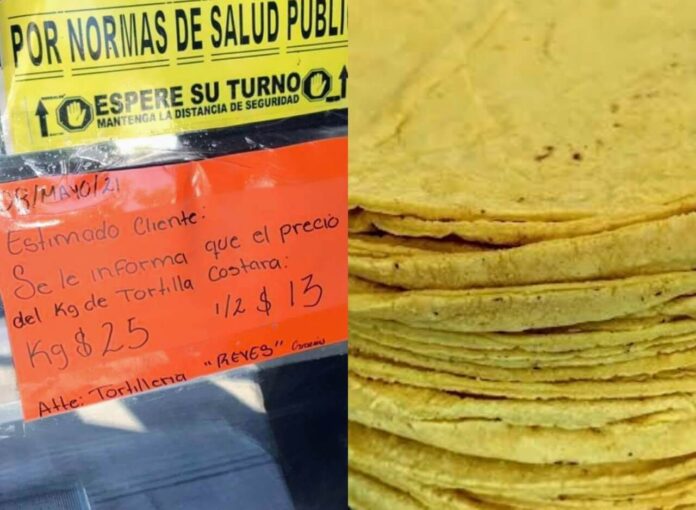 POR NORMAS DE SALUD
ESPERE SU TURNO
MANTENGA LA DISTANCIA DE SEGURIDAD
/MAYO/21
Estimado Cliente:
Se le informa que el precio
del Kg de Tortilla Costara:
Kg $25 1/2 $ 13
Atte: Tortilleria "REYES"